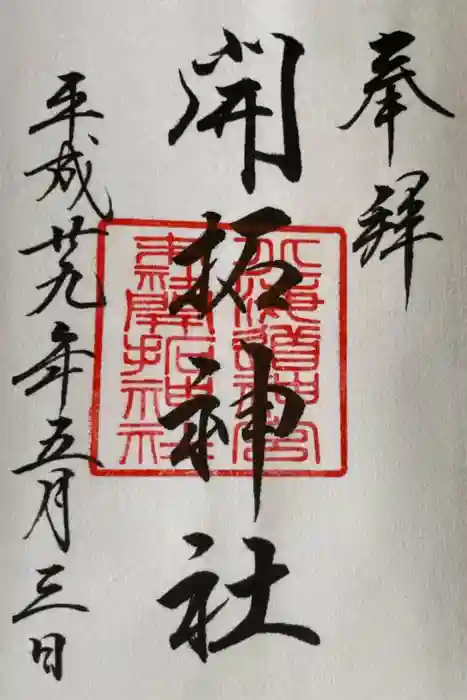 奉拝
開拓神社
平成廿九年五月三日
北海道神宮
末社開拓神社